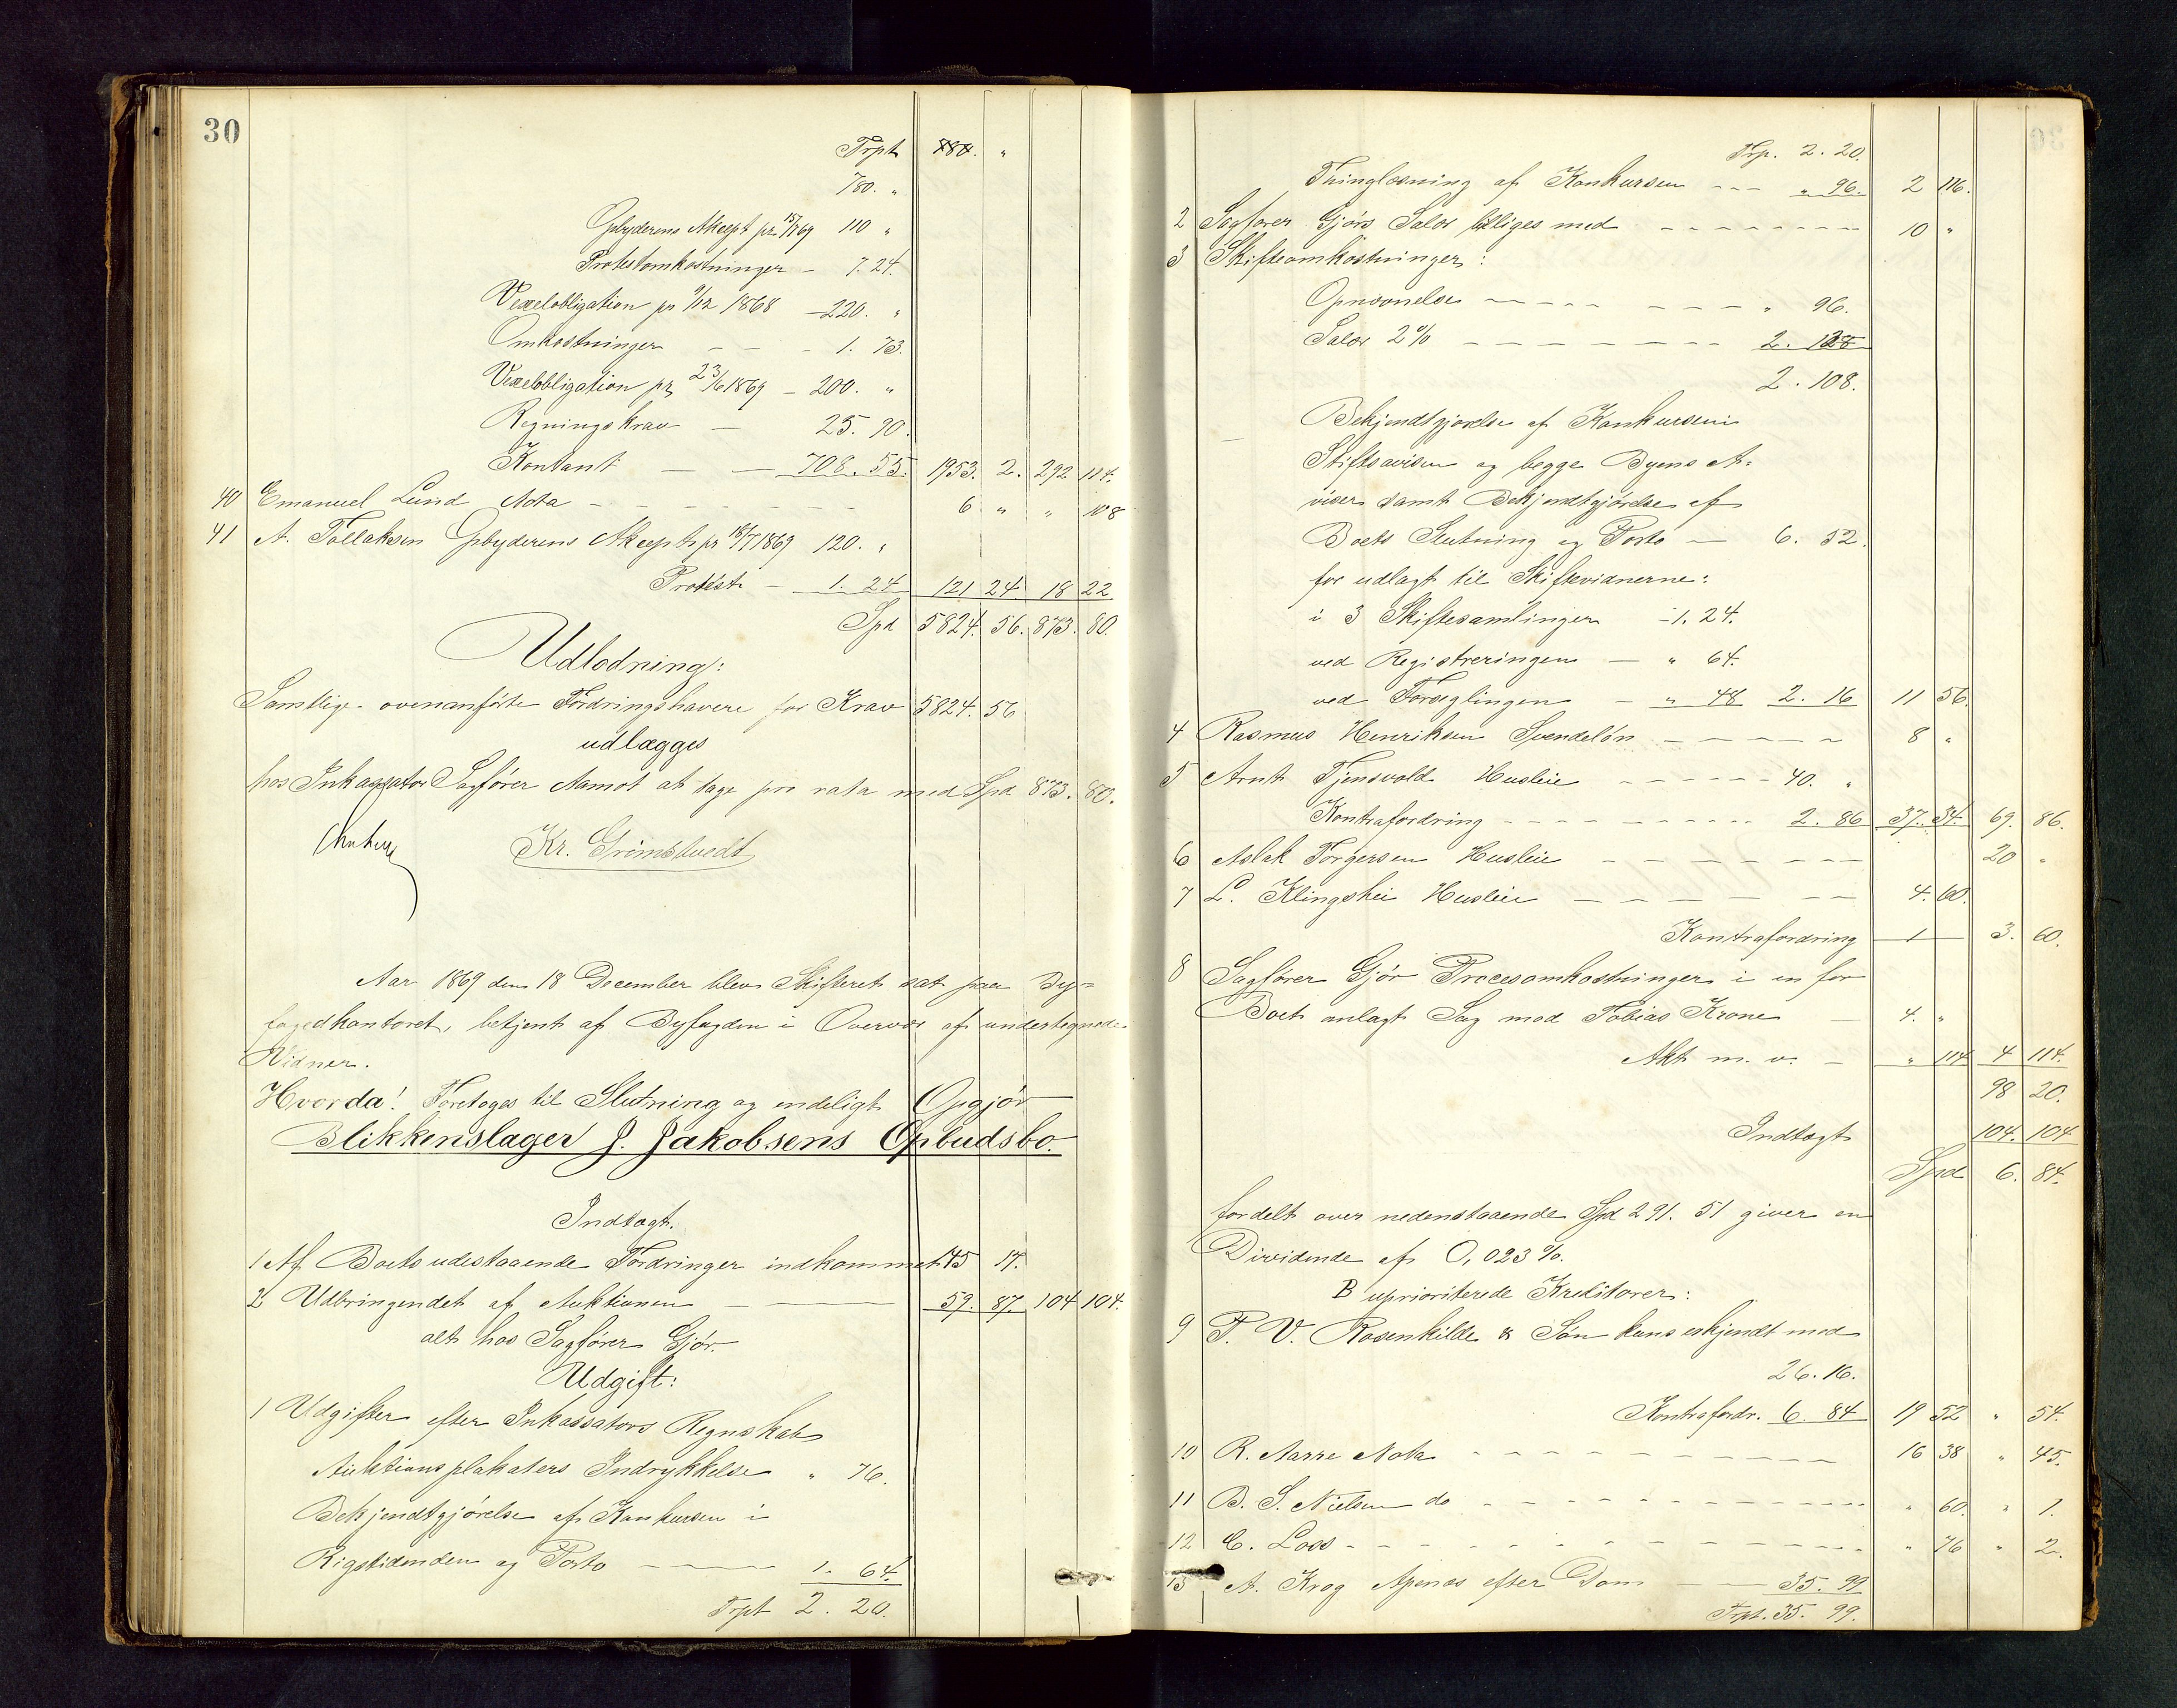 30
Trpt 780. "
780. "
Opbyderens Akcept pr 15/7 69 110 "
Protestomkostninger - 7. 24.
Vexelobligation pr 9/12 1868 - 220. "
Omkostninger - - - 1. 73.
Vexelobligation pr 23/6 1869 - 200. "
Regningskrav - 25. 90.
Kontant - - 708. 55. 1953. 2. 292 114.
40 Emanuel Lund Nota - - - - - 6 " " 108
41 A. Tallaksen Opbyderens Akcept pr 18/7 1869 120. "
Protest - 1. 24 121 24 18 22
Spd 5824. 56. 873. 80.
Udlodning:
Samtlige ovenanførte Fordringshavere for Krav 5824. 56
udlægges
hos Inkassator Sagfører Aamot at tage pro rata med Spd 873. 80.
Kr. Grimstvedt
Aar 1869 den 18 December blev Skifteret sat paa By-
fogedkontoret, betjent af Byfogden i Overvær af undertegnede
Vidner.
Hvorda! Foretoges til Slutning og endeligt Opgjør
Blikkenslager J. Jakobsens Opbudsbo.
Indtægt.
1 Af Boets udestaaende Fordringer indkommet 45 17.
2 Udbringendet af Auktionen - 59. 87. 104 104.
alt hos Sagfører Gjør.
Udgift:
1 Udgifter efter Inkassators Regnskab
Auktionsplakaters Indrykkelse " 76.
Bekjendtgjørelse af Konkursen i
Rigstidenden og Porto - 1. 64.
Trpt 2. 20.
Trp. 2. 20.
Thinglæsning af Konkursen - - - " 96. 2 116.
2 Sagfører Gjørs Salær billiges med - - - - - - 10 "
3 Skifteomkostninger:
Opnævnelse - - - - - - - " 96.
Salær 2% - - - - - - - 2. 108
2. 108.
Bekjendtgjørelse af Konkursen i
Stiftsavisen og begge Byens A-
viser samt Bekjendtgjørelse af
Boets Slutning og Porto - 6. 52.
for udlagt til Skiftevidnerne:
i 3 Skiftesamlinger - 1. 24.
ved Registreringen - " 64.
ved Forseglingen - " 48 2. 16 11 56.
4 Rasmus Henriksen Svendeløn - - - - 8 "
5 Arnt Tjensvold Husleie - - - - - - 40. "
Kontrafordring - - - - - - - - - 2. 86 37. 34. 69. 86.
6 Aslak Torgersen Husleie - - - - - - - 20 "
7 L. Klingshei Husleie - - - - - - - 4. 60.
Kontrafordring 1 - 3. 60.
8 Sagfører Gjør Procesomkostninger i en for
Boet anlagt Sag mod Tobias Krone - 4. "
Akt m. v. - " 114 4 114.
98 20.
Indtægt 104. 104
Spd 6. 84.
fordelt over nedenstaaende Spd 291. 51 giver en
Dividende af 0,023 %.
B uprioriterede Kreditorer:
9 P. V. Rosenkilde & Søn kuns erkjendt med
26. 16.
Kontrafordr. 6. 84 19 52 " 54.
10 R. Aarre Nota - - - - - - - - - 16 38 " 45.
11 B. S. Nielsen do - - - - - - - - " 60. " 1.
12 C. Loss - - - - - - - - - - - " 76 " 2.
13 A. Krag Apenæs efter Dom - - 35. 99
Trpt. 35. 99.